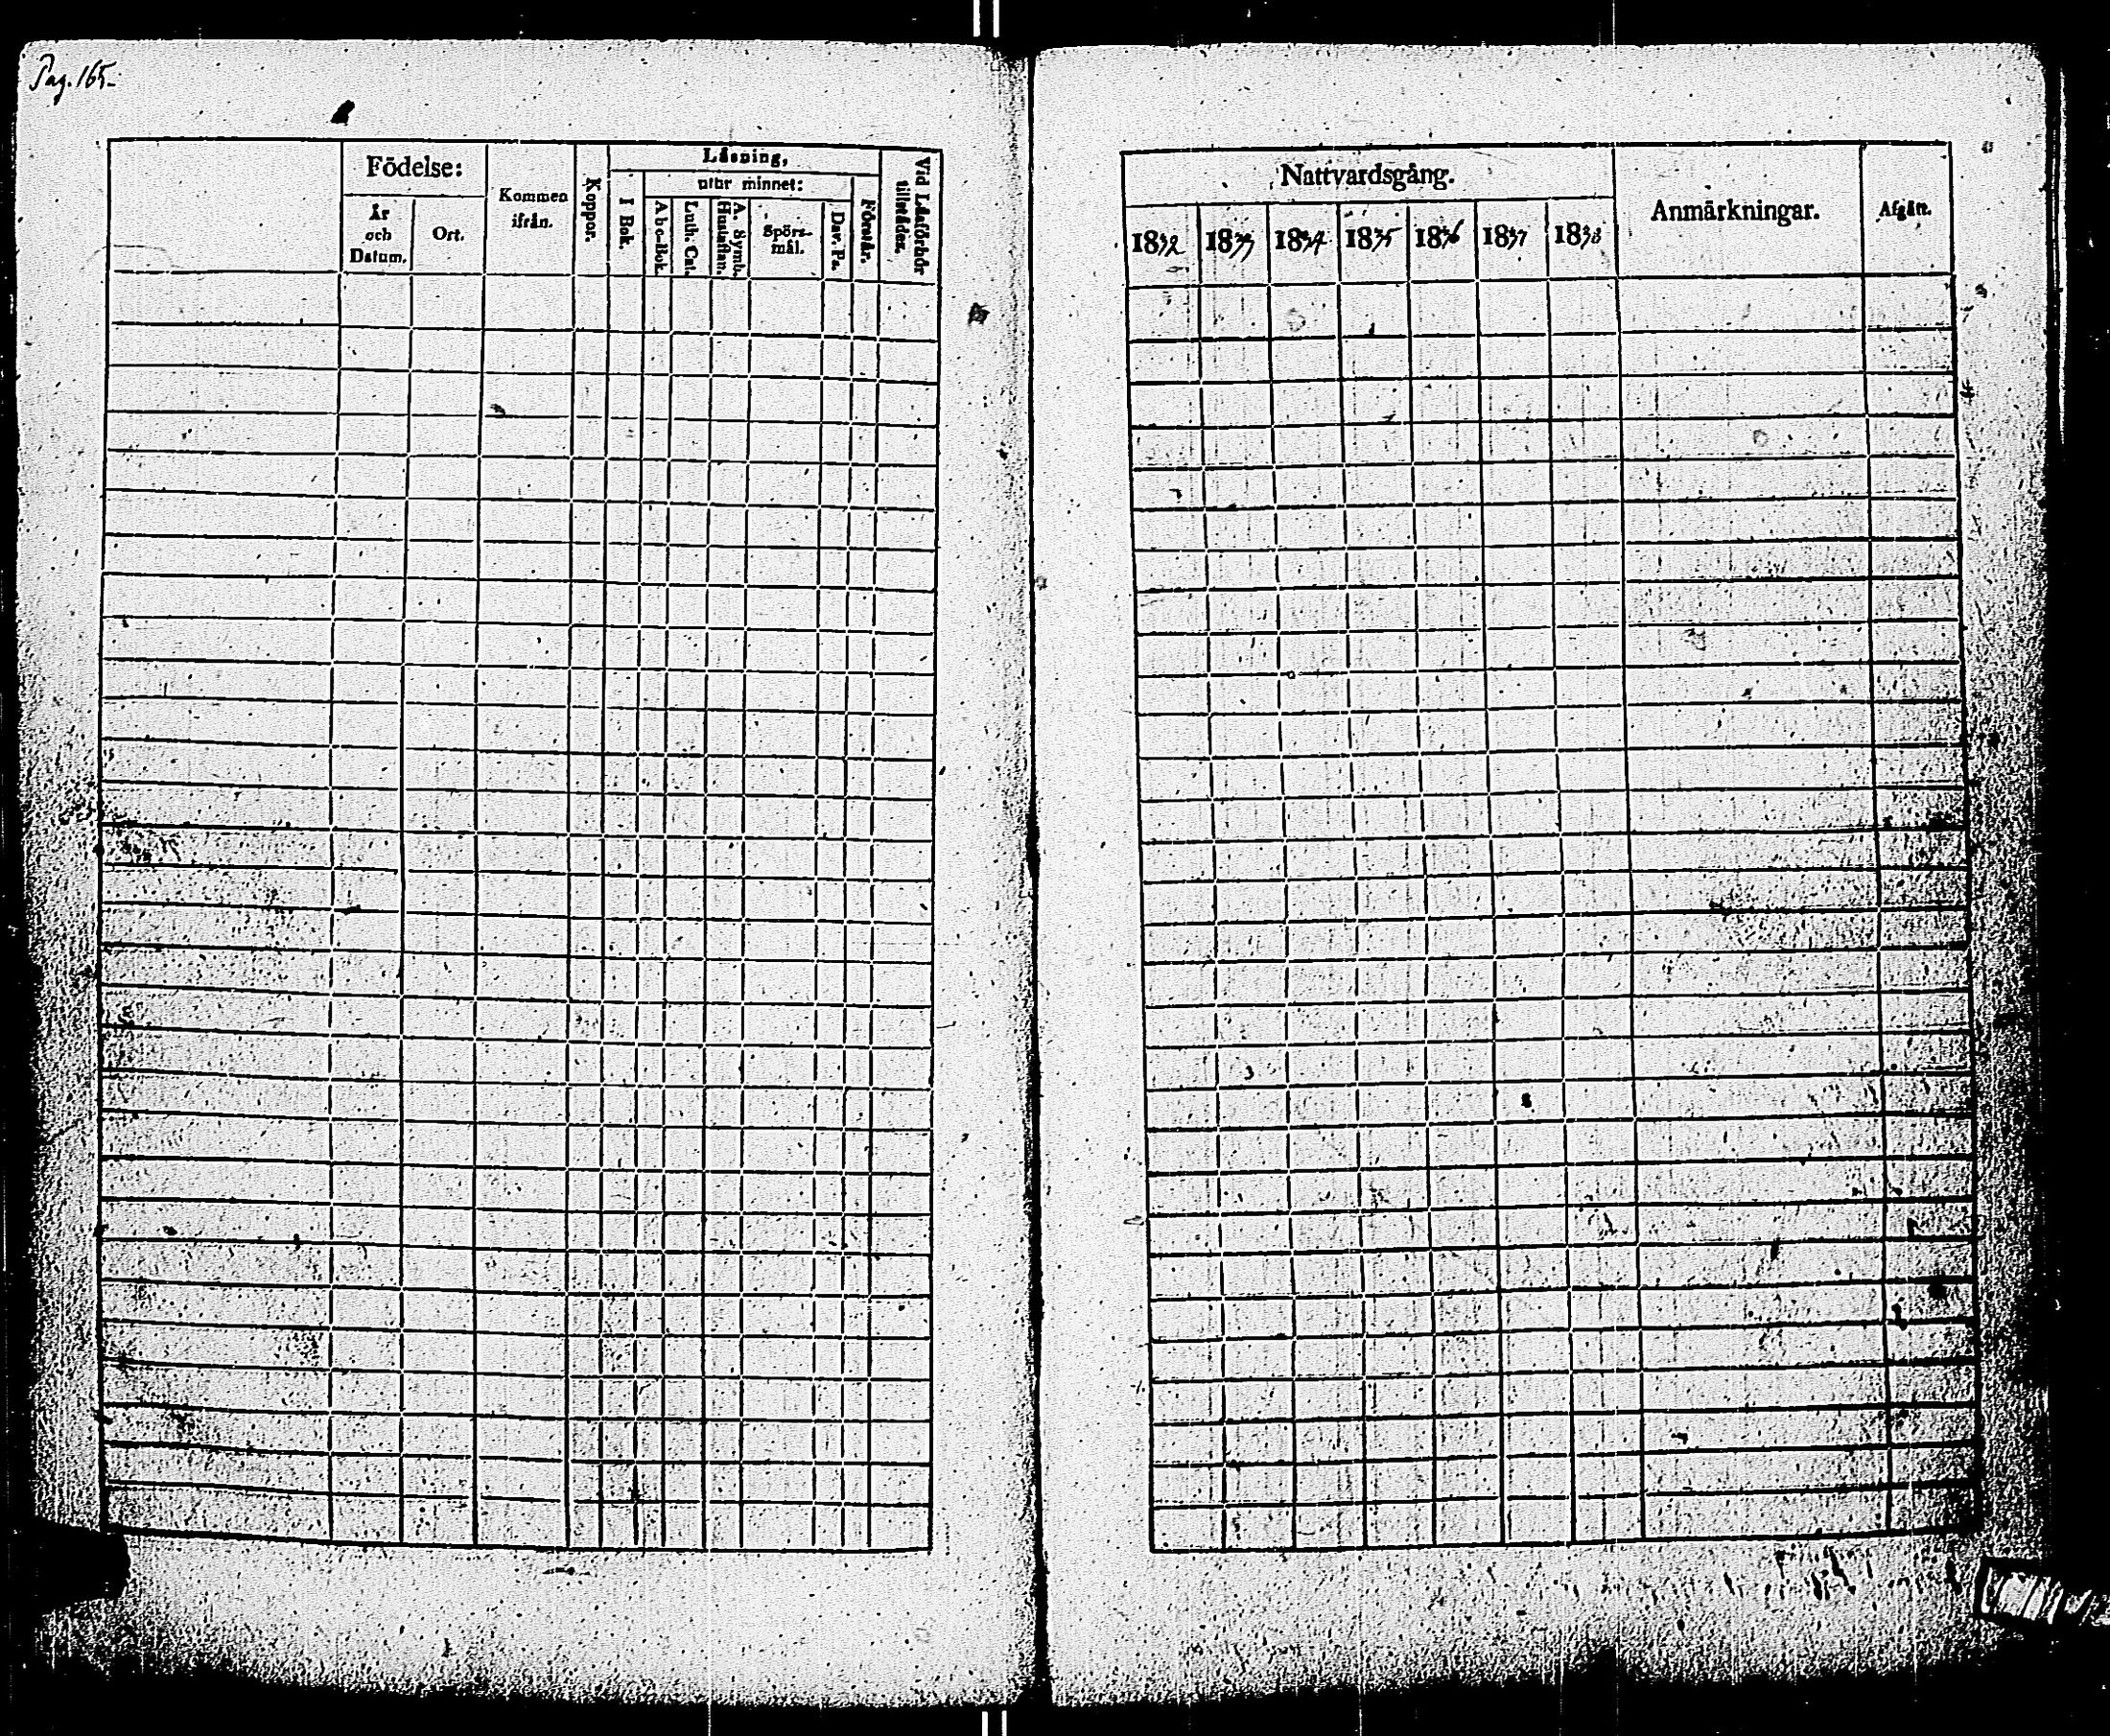 Pag. 165.
Födelse:
År
och
Datum.
Ort.
Kommen
ifrån.
Koppor.
Läsning,
I Bok.
utur minnet:
A b c-Bok.
Luth. Cat.
A. Symb.
Hustaflan.
Spörs-
mål.
Dav. Ps.
Förstår.
Vid Läsförhör
tillstädes.
Nattvardsgång.
1832 1833 1834 1835 1836 1837 1838
Anmärkningar.
Afgått.